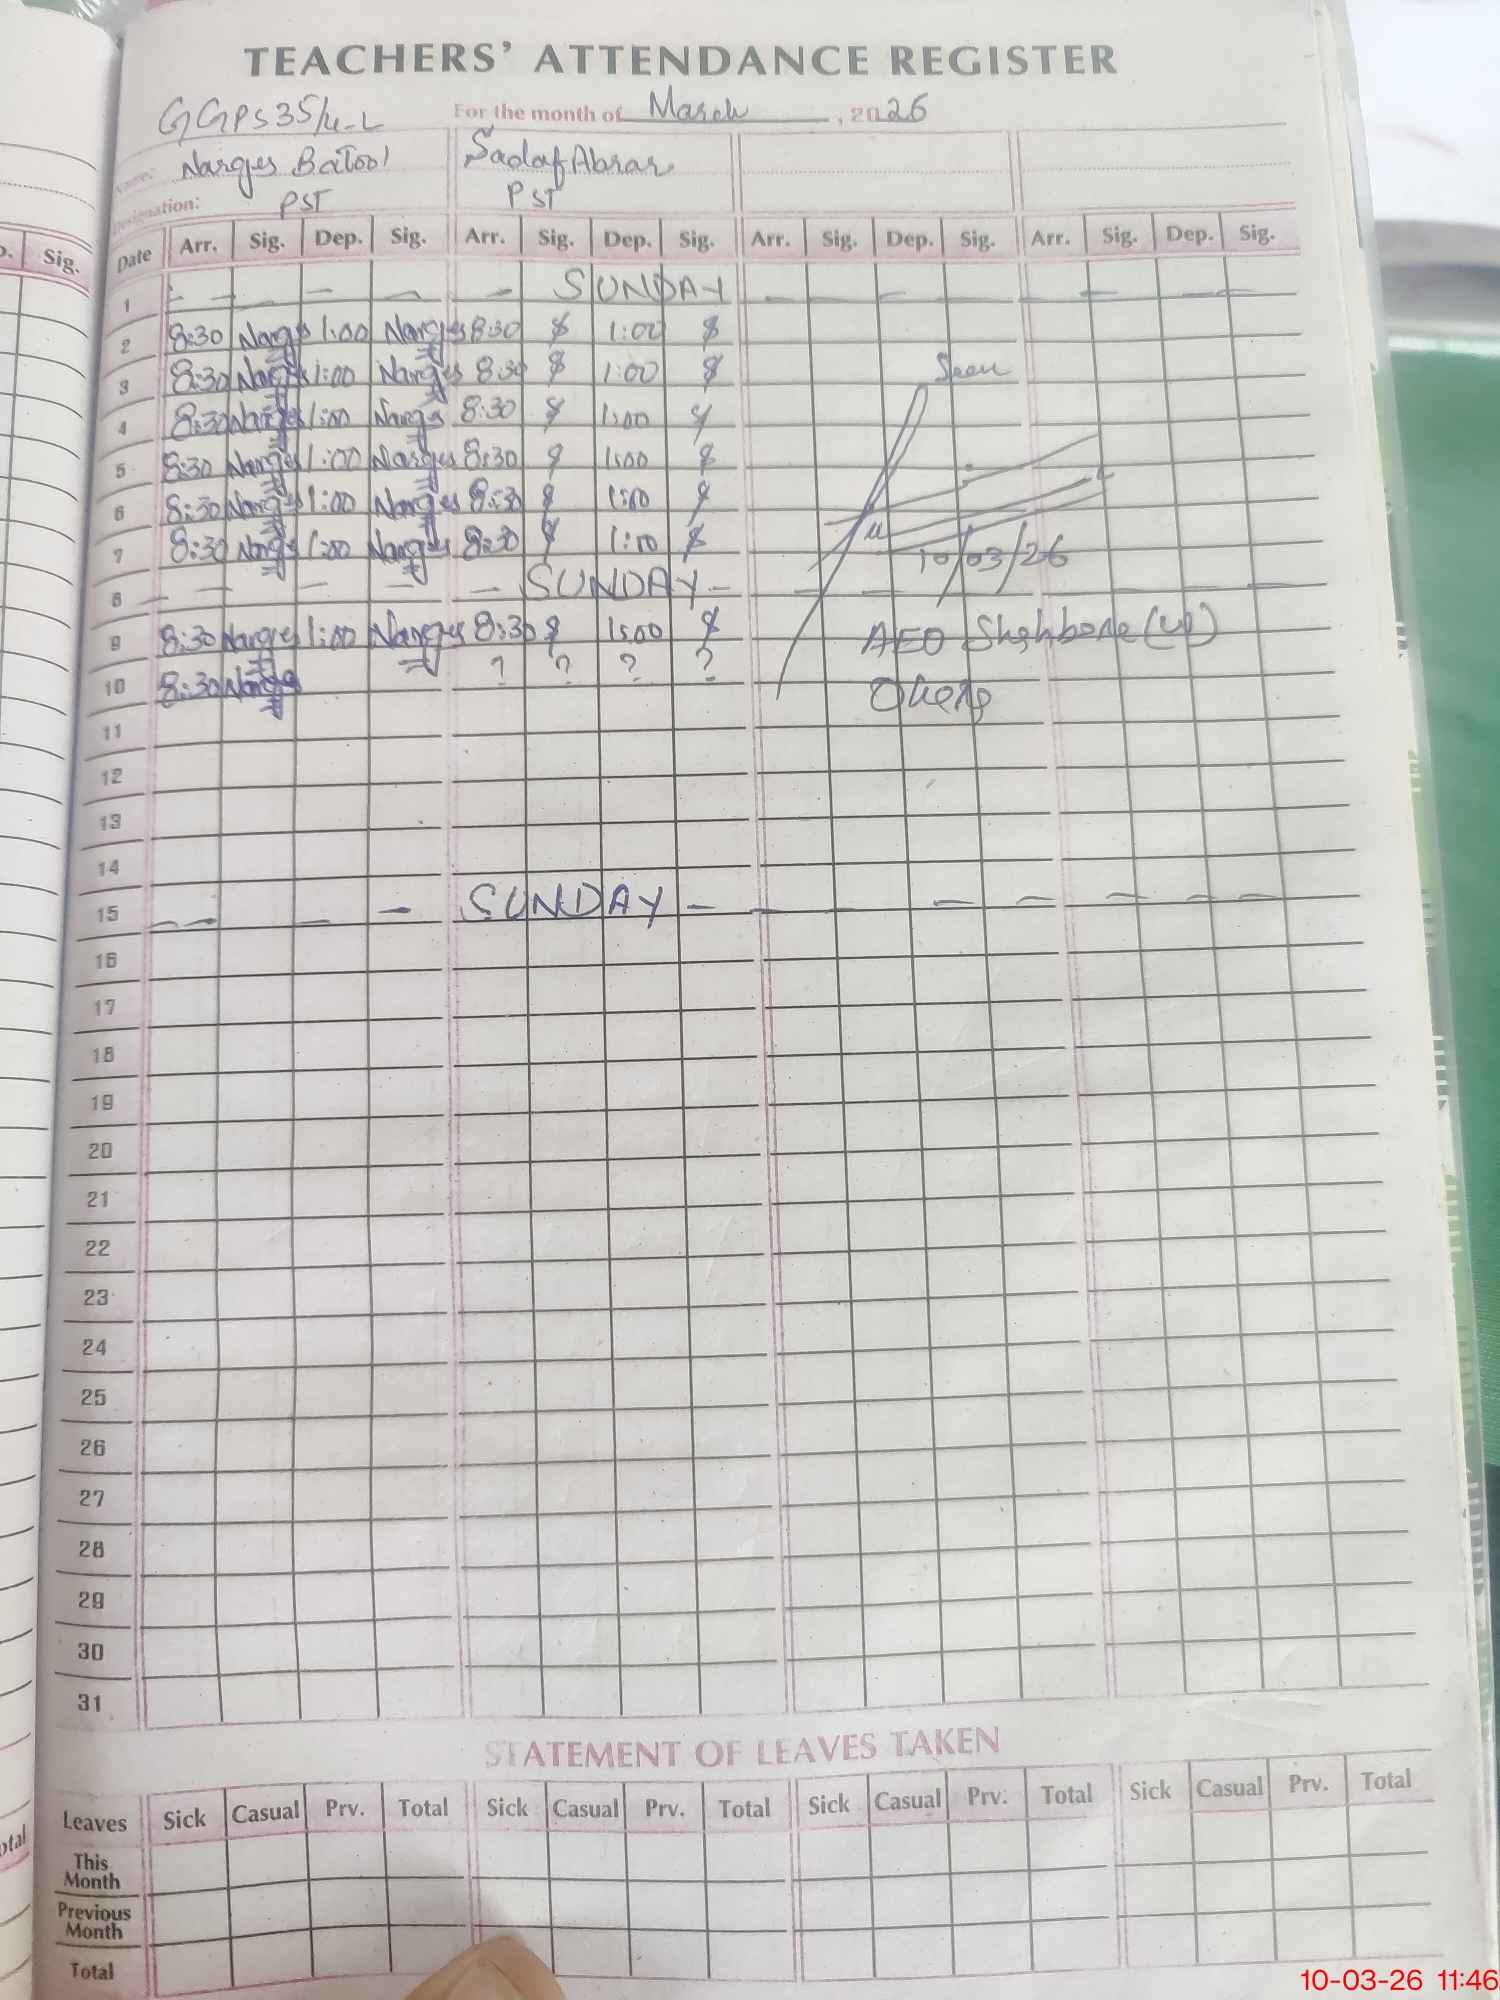 TEACHERS' ATTENDANCE REGISTER
GGPS 35/4-L For the month of March, 2026
Name: Narges Batool Sadaf Abrar
Designation: PST PST
Date Arr. Sig. Dep. Sig. Arr. Sig. Dep. Sig. Arr. Sig. Dep. Sig. Arr. Sig. Dep. Sig.
Sig.
1 — — — — — — SUNDAY — — — — —
2 8:30 Narges 1:00 Narges 8:30 1:00
3 8:30 Narges 1:00 Narges 8:30 1:00 Seen
4 8:30 Narges 1:00 Narges 8:30 1:00
5 8:30 Narges 1:00 Narges 8:30 1:00
6 8:30 Narges 1:00 Narges 8:30 1:00
7 8:30 Narges 1:00 Narges 8:30 1:00 10/03/26
8 — — — — — — SUNDAY — — — — —
9 8:30 Narges 1:00 Narges 8:30 1:00 AEO Shahbore
10 8:30 Narges ? ? ? ?
11
12
13
14
15 — — — — SUNDAY — — — — — — — —
16
17
18
19
20
21
22
23
24
25
26
27
28
29
30
31
STATEMENT OF LEAVES TAKEN
Leaves Sick Casual Prv. Total Sick Casual Prv. Total Sick Casual Prv. Total Sick Casual Prv. Total
This Month
Previous Month
Total
10-03-26 11:46